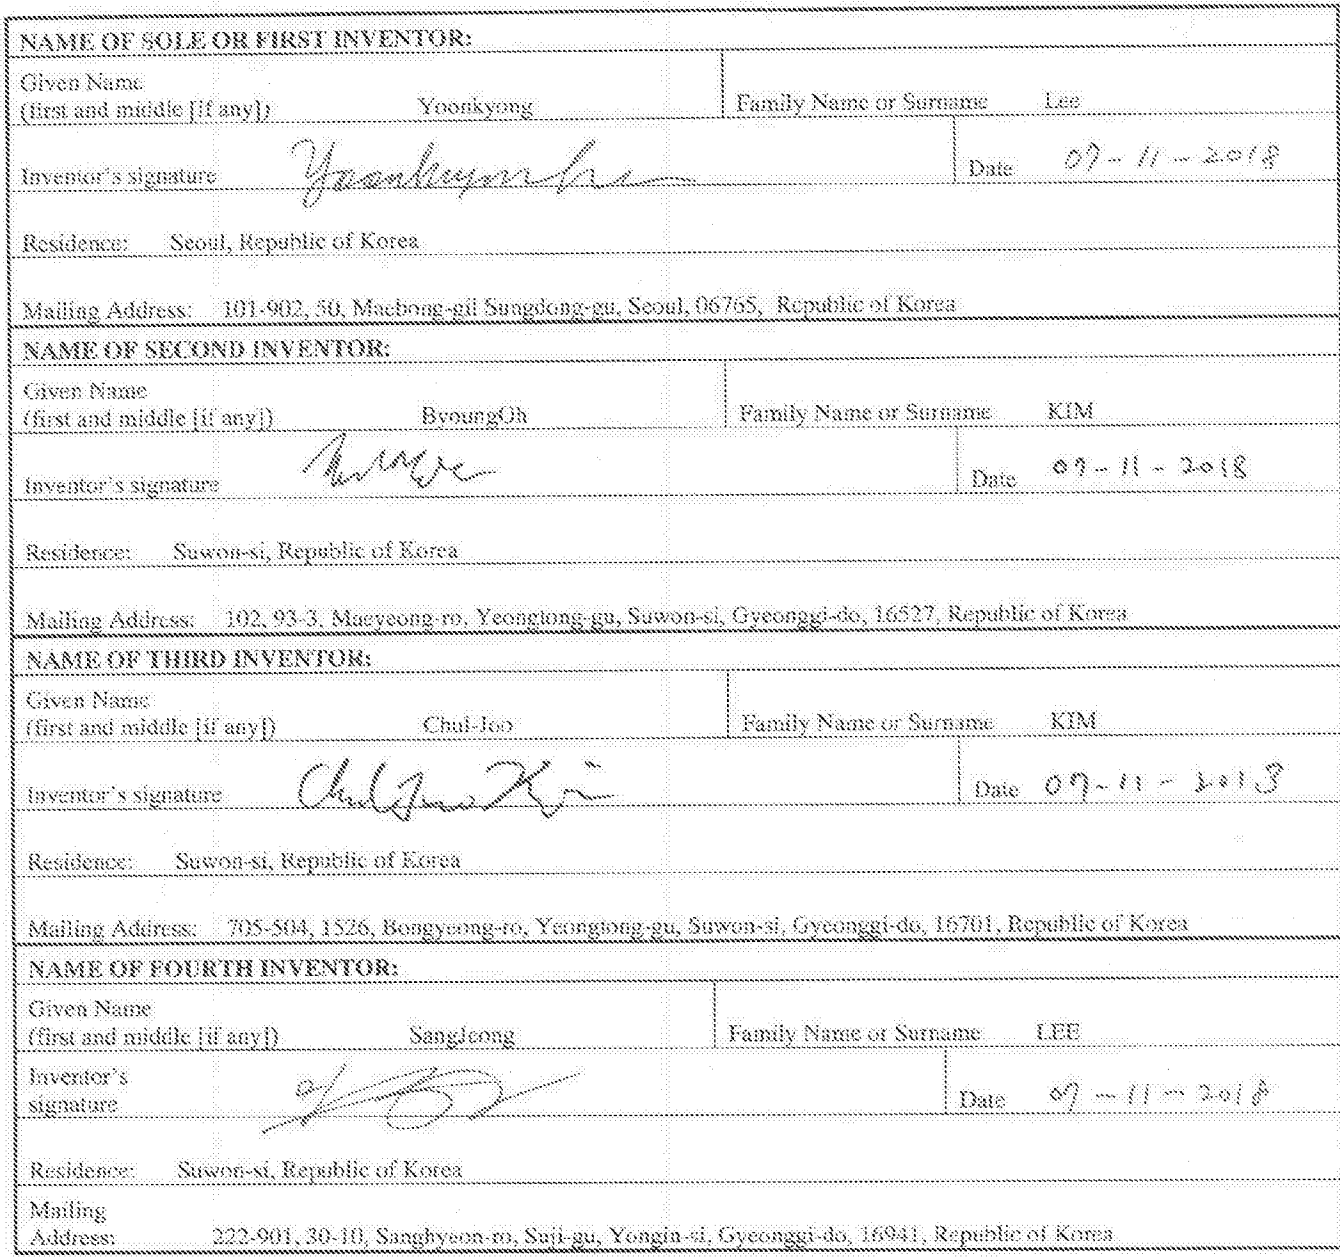 NAME OF SOLE OR FIRST INVENTOR:
Given Name
(first and middle [if any]) Yoonkyong Family Name or Surname Lee
Inventor's signature Date 07-11-2018
Residence: Seoul, Republic of Korea
Mailing Address: 101-902, 50, Maebong-gil Sungdong-gu, Seoul, 06765, Republic of Korea
NAME OF SECOND INVENTOR:
Given Name
(first and middle [if any]) ByoungOh Family Name or Surname KIM
Inventor's signature Date 07-11-2018
Residence: Suwon-si, Republic of Korea
Mailing Address: 102, 93-3, Maeyeong-ro, Yeongtong-gu, Suwon-si, Gyeonggi-do, 16527, Republic of Korea
NAME OF THIRD INVENTOR:
Given Name
(first and middle [if any]) Chul-Joo Family Name or Surname KIM
Inventor's signature Chul Joo Kim Date 07-11-2018
Residence: Suwon-si, Republic of Korea
Mailing Address: 705-504, 1526, Bongyeong-ro, Yeongtong-gu, Suwon-si, Gyeonggi-do, 16701, Republic of Korea
NAME OF FOURTH INVENTOR:
Given Name
(first and middle [if any]) SangJeong Family Name or Surname LEE
Inventor's
signature Date 07-11-2018
Residence: Suwon-si, Republic of Korea
Mailing
Address: 222-901, 30-10, Sanghyeon-ro, Suji-gu, Yongin-si, Gyeonggi-do, 16941, Republic of Korea